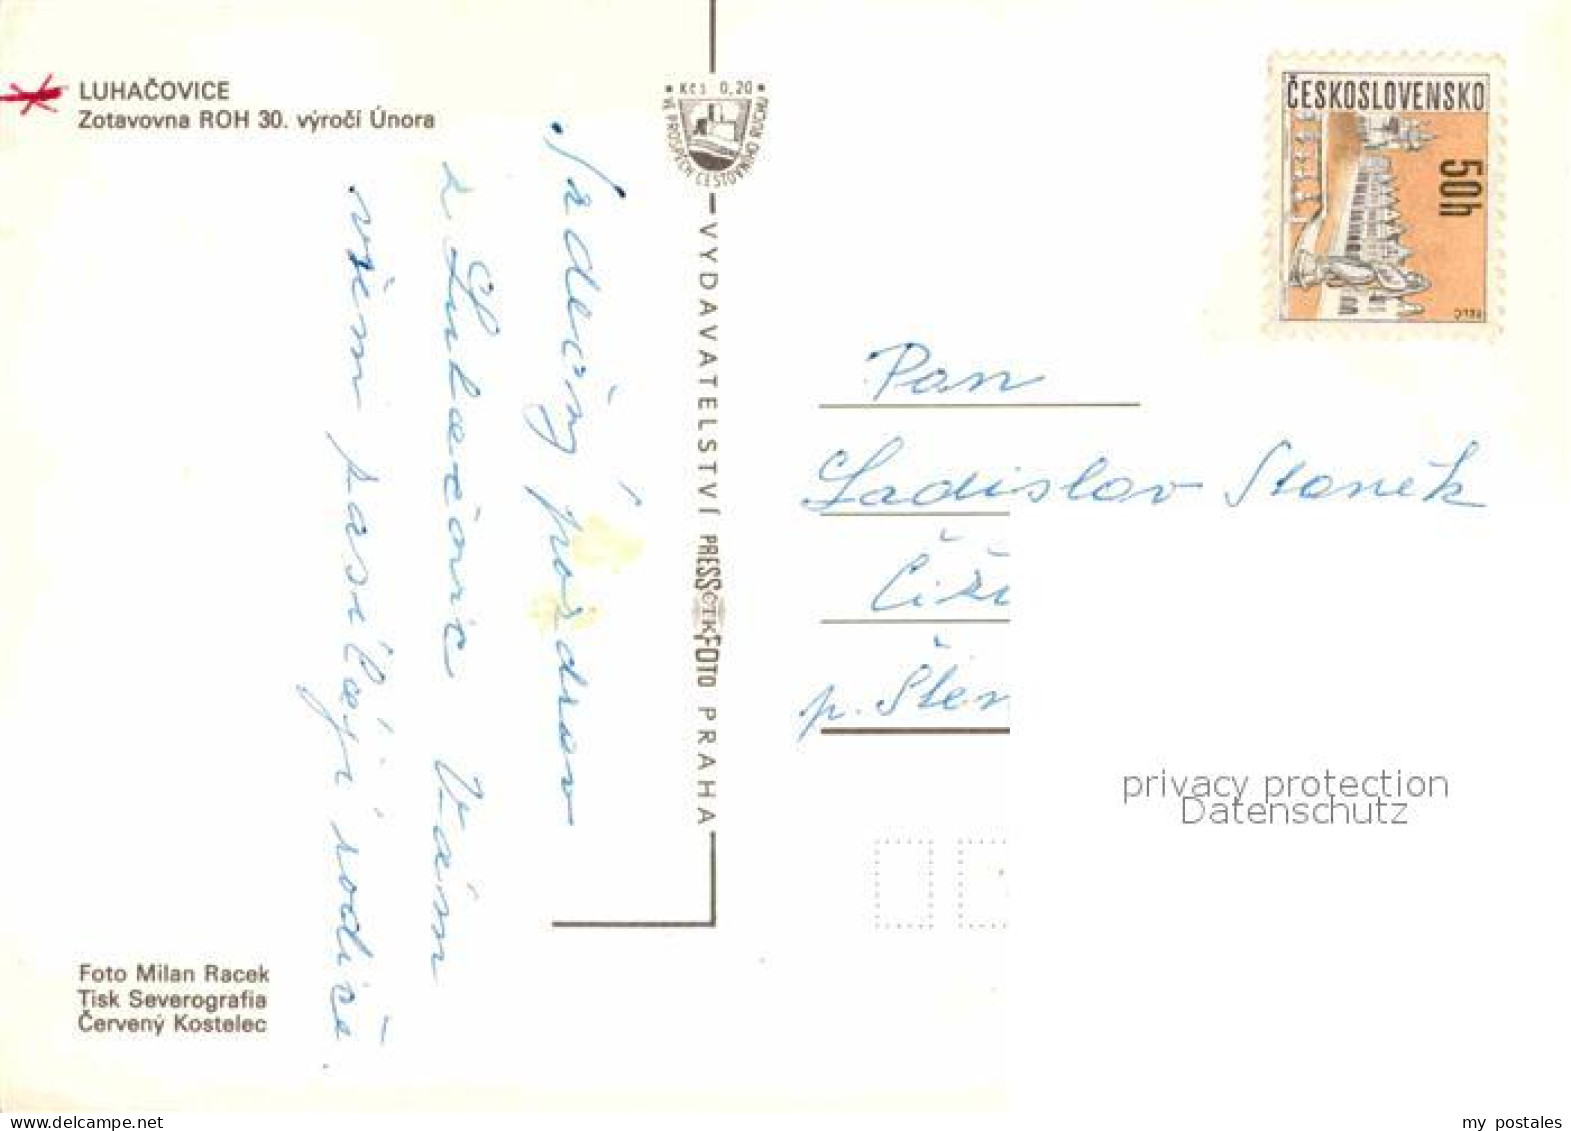 LUHAČOVICE
Zotavovna ROH 30. výročí Února
Srdečný pozdrav
z Luhačovic Vám
všem zasílají rodiče.
Foto Milan Racek
Tisk Severografia
Červený Kostelec
Kčs 0,20
VE PROSPĚCH CESTOVNÍHO RUCHU
VYDAVATELSTVÍ PRESSFOTO PRAHA
ČTK
ČESKOSLOVENSKO
50h
TELČ
Pan
Ladislav Staněk
Čiži
p. Štern
privacy protection
Datenschutz
my postales